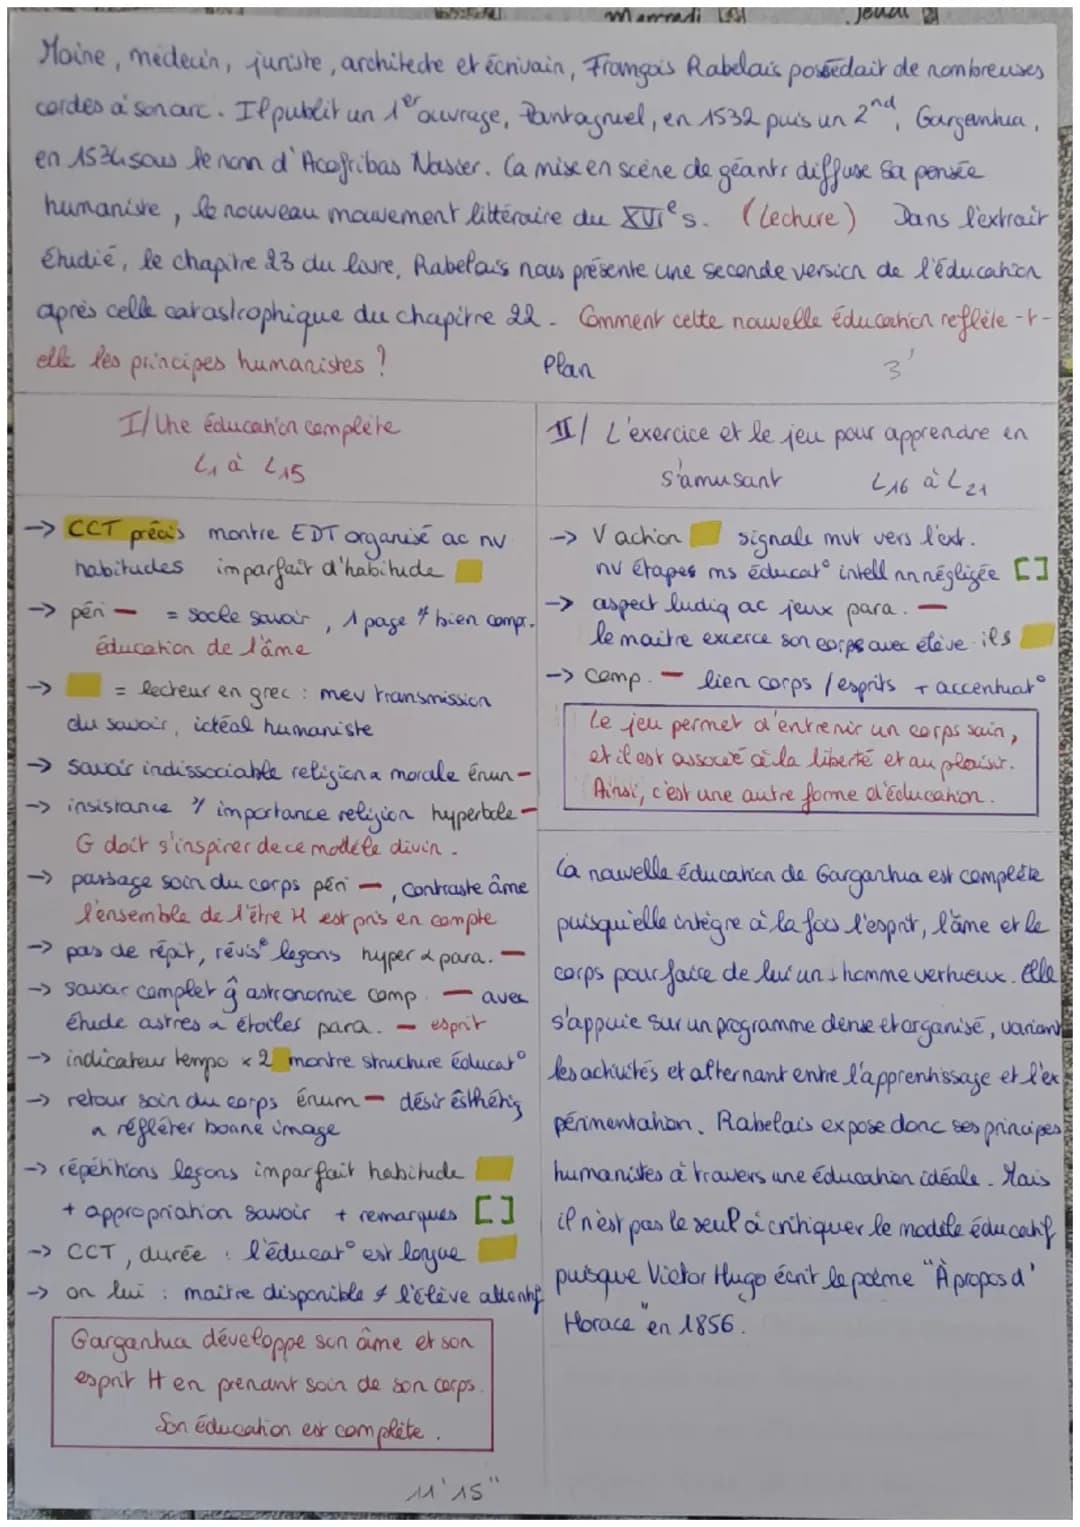 Mercredi
Jeudi
Moine, médecin, juriste, architecte et écrivain, François Rabelais possédait de nombreuses
cordes à son arc. Il publit un 1er ouvrage, Pantagruel, en 1532 puis un 2nd, Gargantua,
en 1534 sous le nom d'Acofribas Nasier. La mise en scène de géants diffuse sa pensée
humaniste, le nouveau mouvement littéraire du XVIe s. (Lecture) Dans l'extrait
étudié, le chapitre 23 du livre, Rabelais nous présente une seconde version de l'éducation
après celle catastrophique du chapitre 22. Comment cette nouvelle éducation reflète-t-
elle les principes humanistes ?
Plan
3'
I/ Une éducation complète
L1 à L15
-> CCT précis montre EDT organisé ac nv
habitudes imparfait d'habitude
-> péri — = socle savoir, 1 page % bien compr.
éducation de l'âme
-> = lecteur en grec : mev transmission
du savoir, idéal humaniste
-> savoir indissociable religion a morale énum —
-> insistance % importance religion hyperbole —
G doit s'inspirer de ce modèle divin.
-> passage soin du corps péri —, contraste âme
l'ensemble de l'être H est pris en compte
-> pas de répit, révise leçons hyper & para. —
-> savoir complet ĝ astronomie comp. — avec
étude astres a étoiles para. — esprit
-> indicateur tempo x 2 montre structure éducat°
-> retour soin du corps énum — désir êsthétiq
a réfléter bonne image
-> répétitions leçons imparfait habitude
+ appropriation savoir + remarques []
-> CCT, durée : l'éducat° est longue
-> on lui : maître disponible ≠ l'élève attentif
Gargantua développe son âme et son
esprit H en prenant soin de son corps.
Son éducation est complète.
11'15"
II/ L'exercice et le jeu pour apprendre en
s'amusant L16 à L21
-> V action signale mvt vers l'ext.
nv étapes ms éducat° intell nn négligée []
-> aspect ludiq ac jeux para. —
le maître excerce son corps avec élève ils
-> comp. — lien corps / esprits + accentuat°
Le jeu permet d'entrenir un corps sain,
et il est associé à la liberté et au plaisir.
Ainsi, c'est une autre forme d'éducation.
La nouvelle éducation de Gargantua est complète
puisqu'elle intègre à la fois l'esprit, l'âme et le
corps pour faire de lui un homme vertueux. Elle
s'appuie sur un programme dense et organisé, variant
les activités et alternant entre l'apprentissage et l'ex
périmentation. Rabelais expose donc ses principes
humanistes à travers une éducation idéale. Mais
il n'est pas le seul à critiquer le modèle éducatif
puisque Victor Hugo écrit le poème "À propos d'
Horace" en 1856.